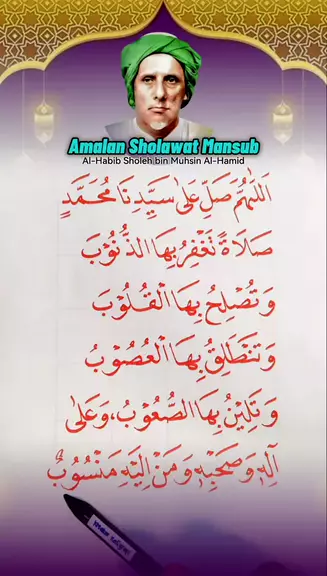 Amalan Sholawat Mansub
Al-Habib Sholeh bin Muhsin Al-Hamid
اَللّٰهُمَّ صَلِّ عَلٰى سَيِّدِنَا مُحَمَّدٍ
صَلَاةً تَغْفِرُ بِهَا الذُّنُوْبَ
وَتُصْلِحُ بِهَا الْقُلُوْبَ
وَتَنْطَلِقُ بِهَا الْعُصُوْبُ
وَتَلِيْنُ بِهَا الصُّعُوْبُ، وَعَلٰى
آلِهٖ وَصَحْبِهٖ وَمَنْ اِلَيْهِ مَنْسُوْبٌ